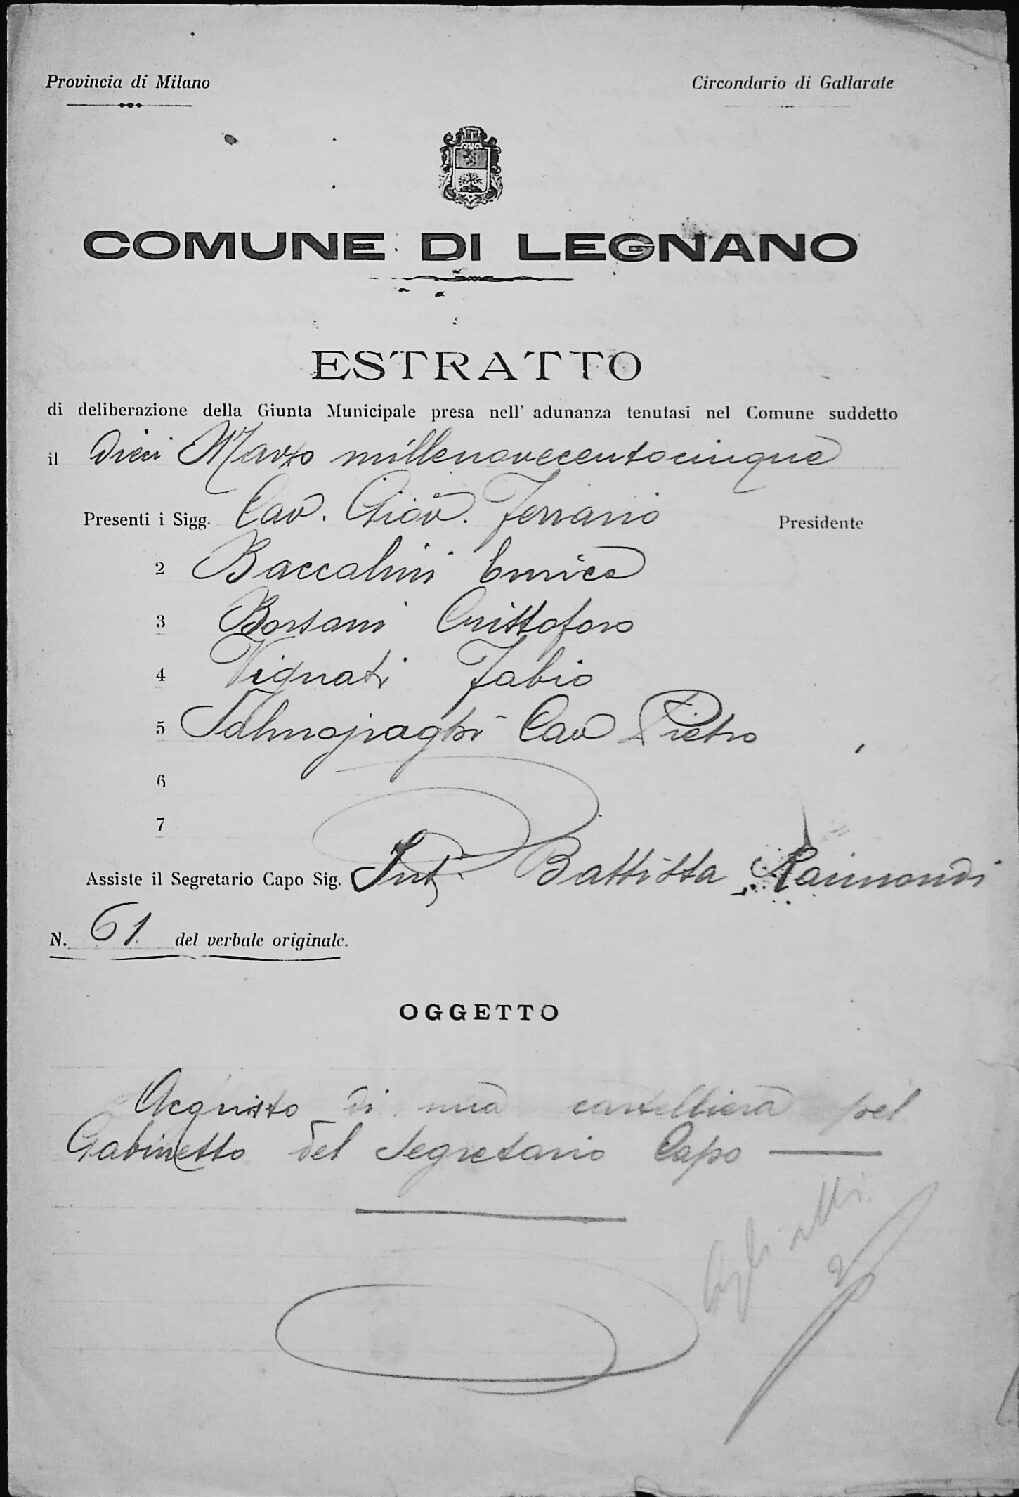 Provincia di Milano
Circondario di Gallarate
COMUNE DI LEGNANO
ESTRATTO
di deliberazione della Giunta Municipale presa nell' adunanza tenutasi nel Comune suddetto
il dieci Marzo millenovecentocinque
Presenti i Sigg. Cav. Giov. Ferrario Presidente
2 Baccalini Enrico
3 Borsani Cristoforo
4 Vignati Fabio
5 Salmojraghi Cav Pietro
6
7
Assiste il Segretario Capo Sig. Battista Raimondi
N. 61 del verbale originale.
OGGETTO
Acquisto di una cartelliera pel
Gabinetto del Segretario Capo
agli atti